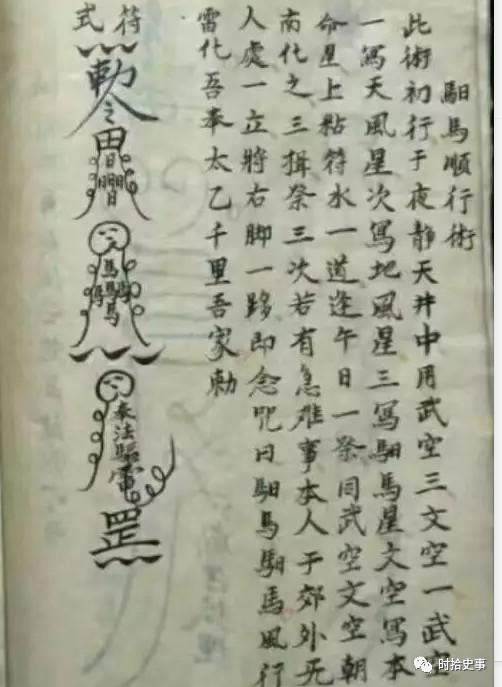 駟馬順行術
此術初行于夜靜天井中用武空三文空一武空
一寫天風星次寫地風星三寫駟馬星文空寫本
命星上黏符水一道逢午日一祭同武空文空朝
南化之三揖祭三次若有急难事本人于郊外无
人處一立將右脚一跺即念咒曰駟馬駟馬風行
雷化吾奉太乙千里吾家勅
符式
勅令
奉法驅雷
罡
时拾史事